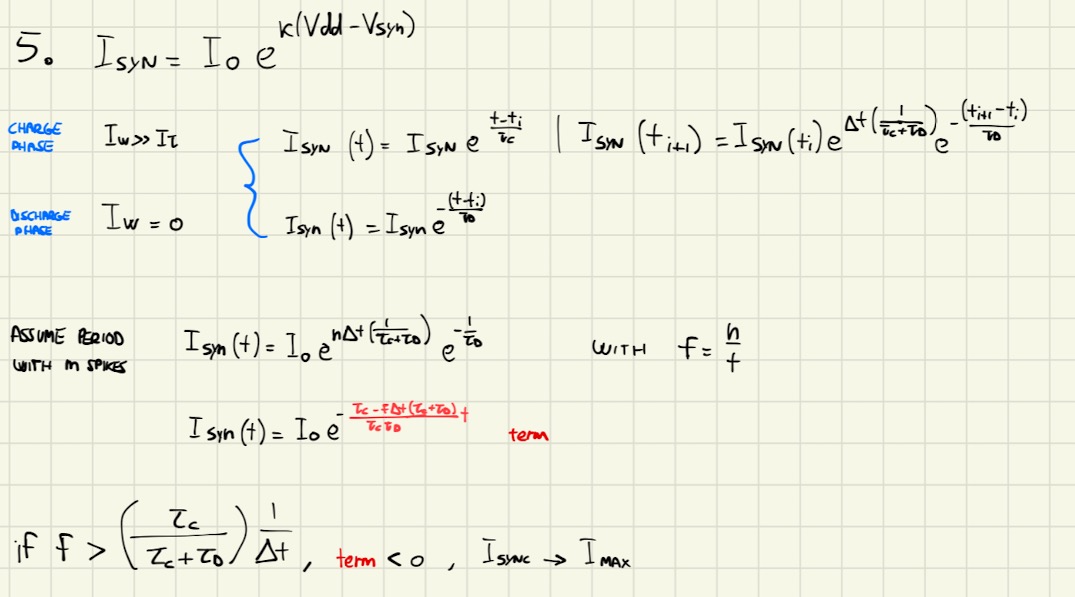 5. I_SYN = I_0 e^{κ(Vdd - Vsyn)}
CHARGE PHASE I_W >> I_τ I_SYN (t) = I_SYN e^{\frac{t-t_i}{τ_c}} | I_SYN (t_{i+1}) = I_SYN (t_i) e^{Δt(\frac{1}{τ_c+τ_D})} e^{-\frac{(t_{i+1}-t_i)}{τ_D}}
DISCHARGE PHASE I_W = 0 I_syn (t) = I_syn e^{-\frac{(t-t_i)}{τ_D}}
ASSUME PERIOD WITH n SPIKES I_syn (t) = I_0 e^{nΔt(\frac{1}{τ_c+τ_D})} e^{-\frac{1}{τ_D}} WITH f = \frac{n}{t}
I_syn (t) = I_0 e^{-\frac{τ_c - fΔt(τ_c+τ_D)}{τ_c τ_D} t} term
if f > (\frac{τ_c}{τ_c+τ_D}) \frac{1}{Δt}, term < 0, I_SYNC → I_MAX